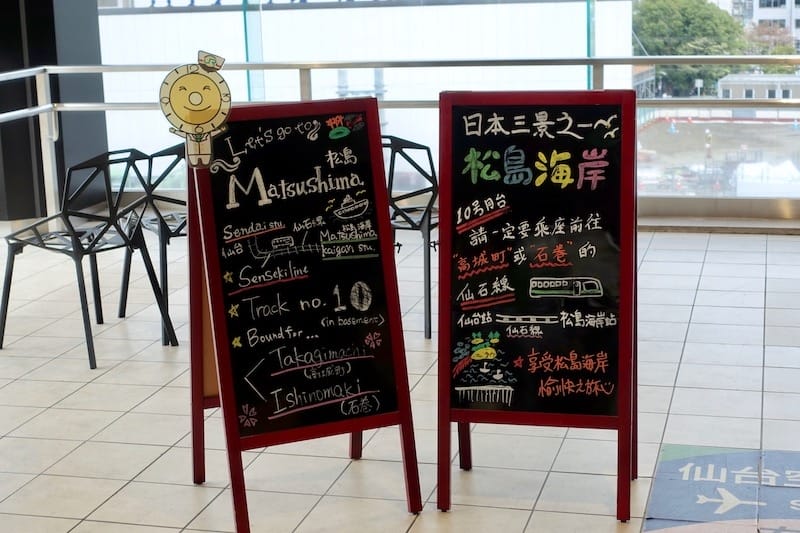 Let's go to
松島
Matsushima
Sendai stn.
仙台
仙石線
松島海岸
Matsushima
kaigan stn.
Senseki line
Track no. 10
(in basement)
Bound for...
Takagimachi
(高城町)
Ishinomaki
(石巻)
日本三景之一
松島海岸
10号月台
請一定要乘座前往
"高城町"或"石巻"的
仙石線
仙台站
松島海岸站
仙石線
享受松島海岸
愉快之旅
仙台空